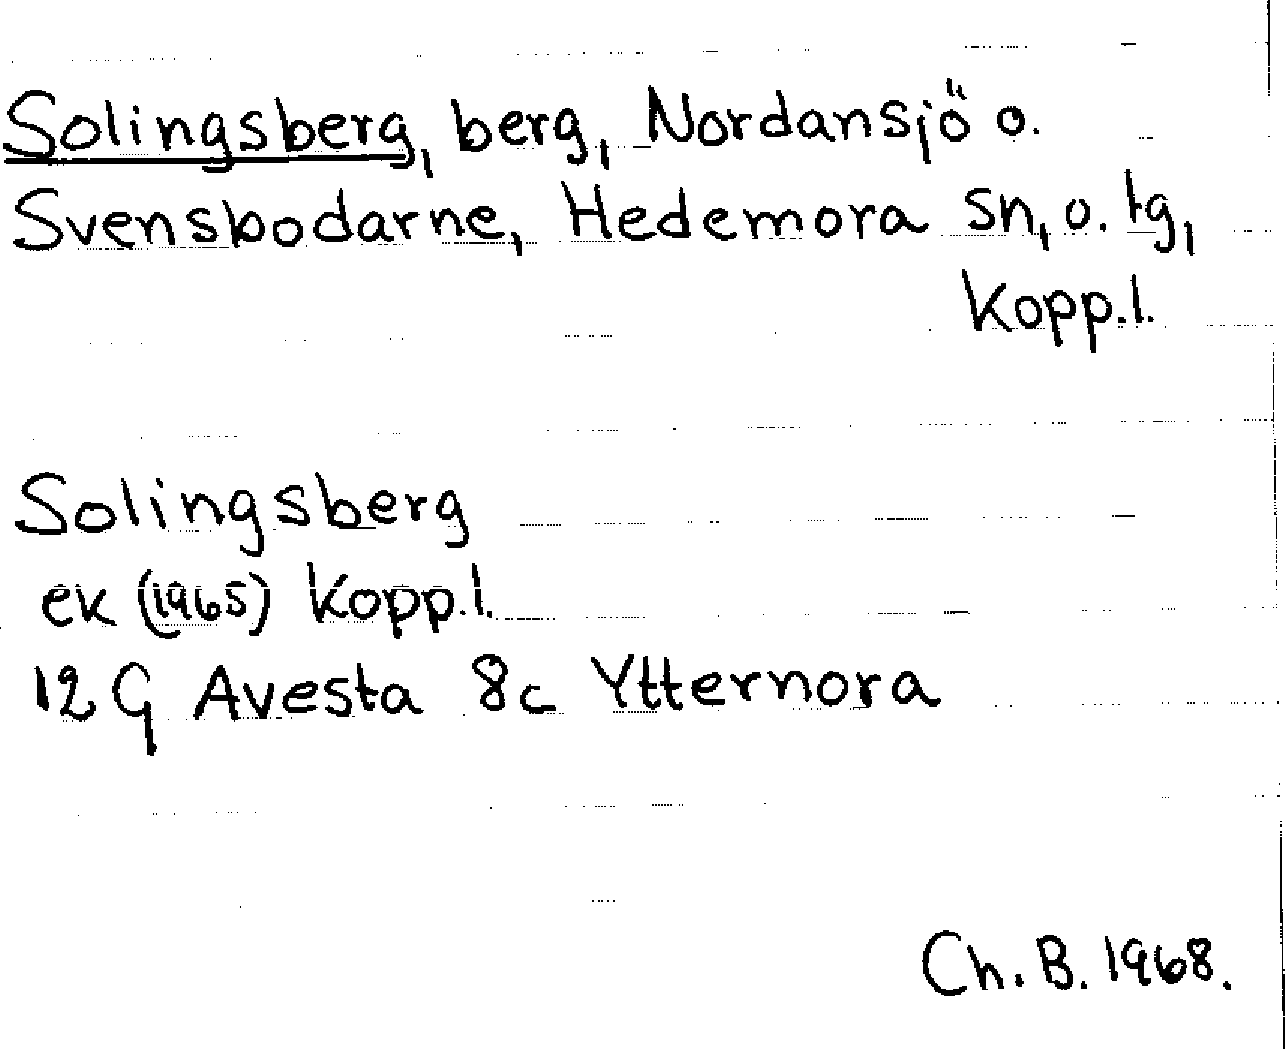 Solingsberg, berg, Nordansjö o.
Svensbodarne, Hedemora sn, o. tg,
Kopp.l.
Solingsberg
ek (1965) Kopp.l.
12 G Avesta 8c Ytternora
Ch. B. 1968.